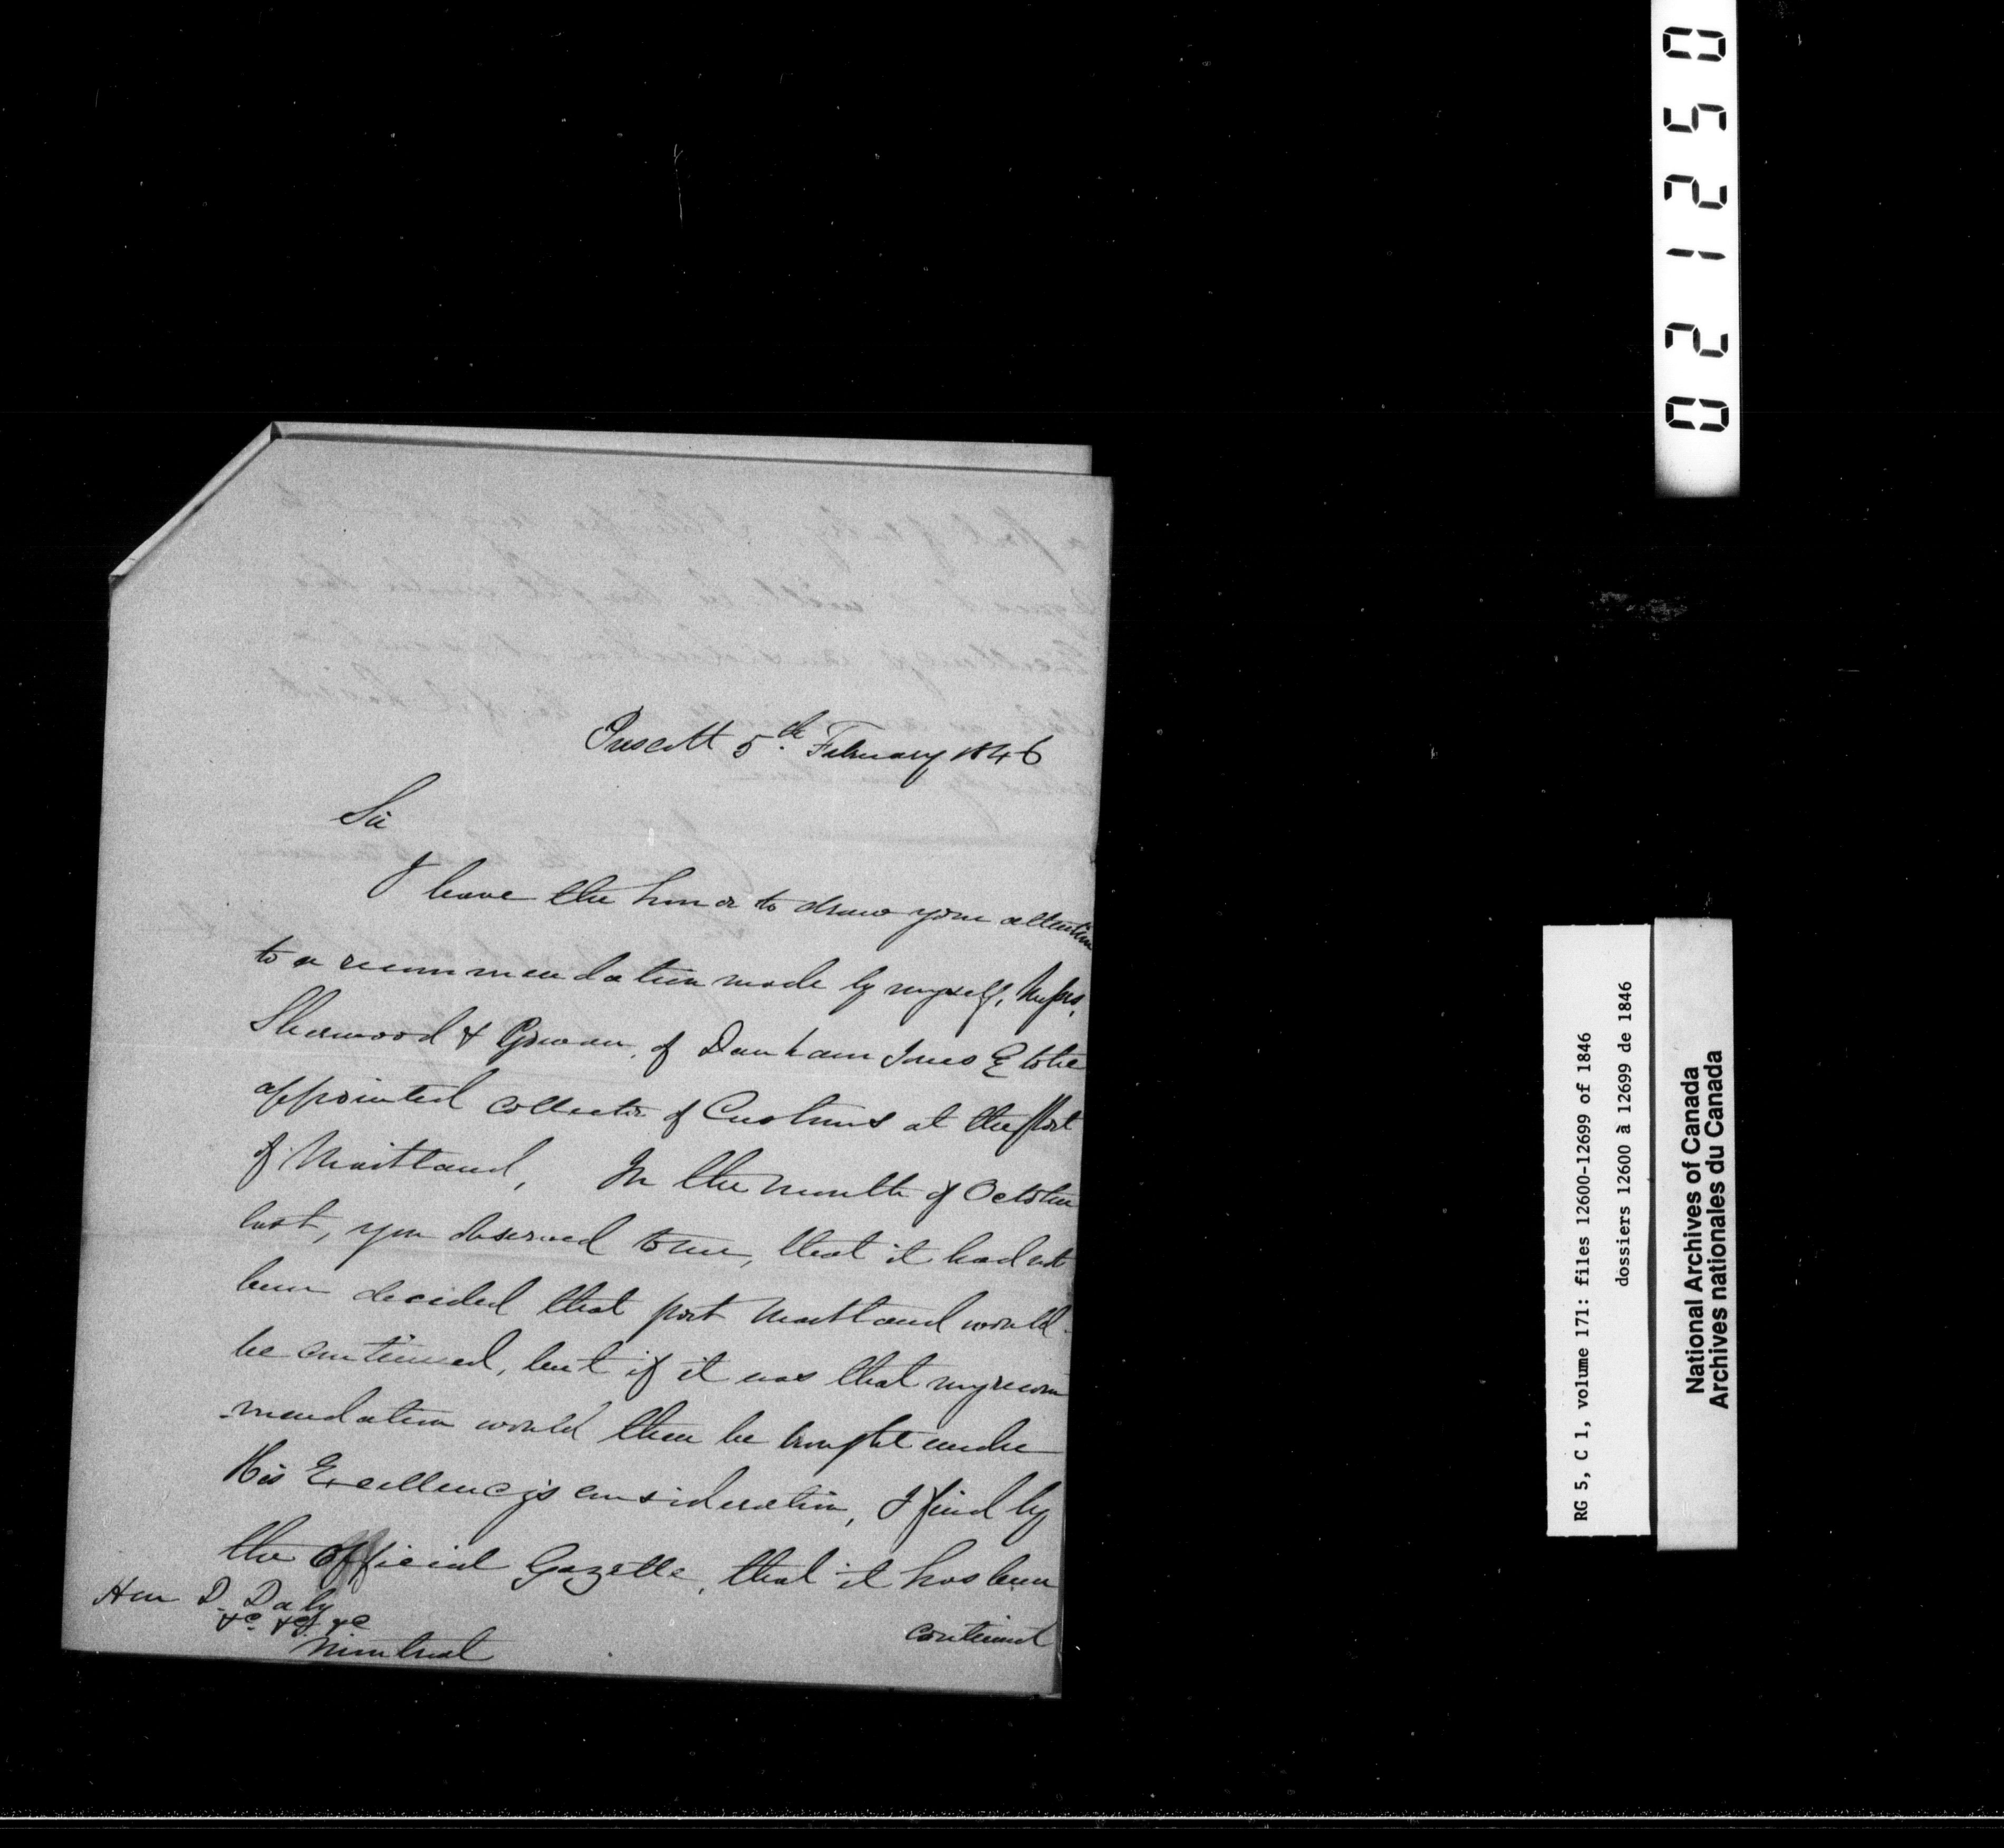 Prescott 5th. February 1846
Sir
I have the honor to draw your attention
to a recommendation made by myself, Messrs.
Sherwood & Gowan, of Dunham Jones E to be
appointed collector of Customs at the Port
of Maitland, In the month of October
last, you observed to me, that it had not
been decided that port Maitland would
be continued, but if it was that my recom
-mendation would then be brought under
His Excellencys consideration, I find by
the official Gazette, that it has been
continued
Hon D. Daly
&c &c &c
Montreal
021250
RG 5, C 1, volume 171: files 12600-12699 of 1846
dossiers 12600 à 12699 de 1846
National Archives of Canada
Archives nationales du Canada